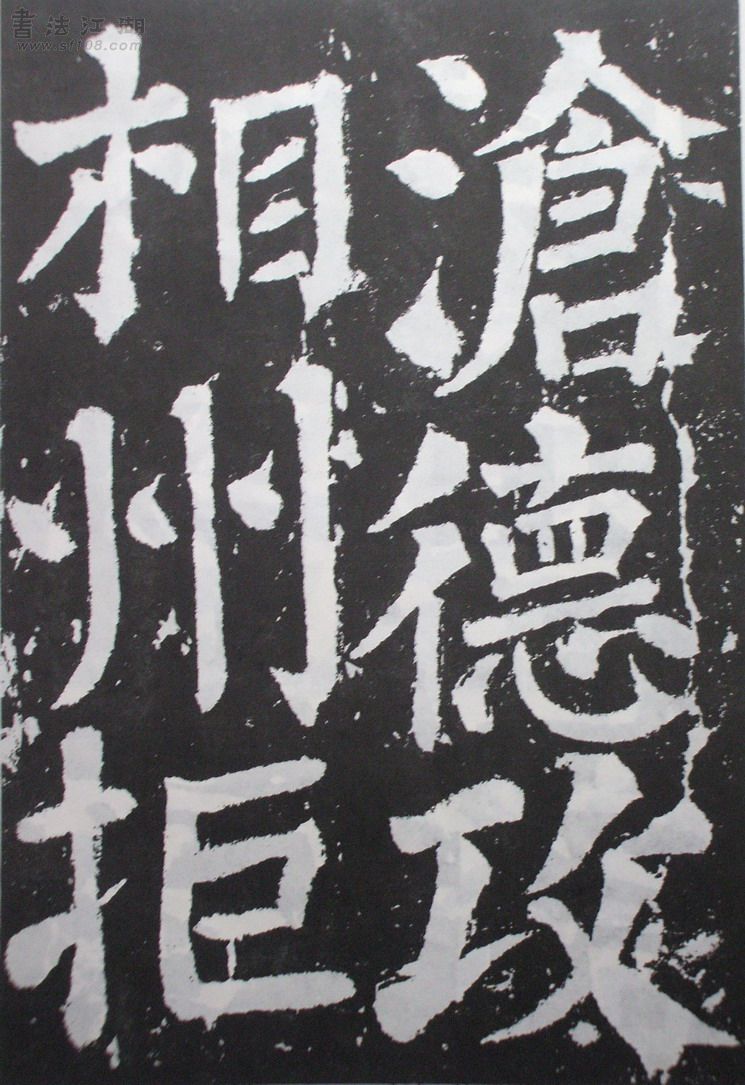 滄德攻
相州拒
書法江湖
www.sf108.com